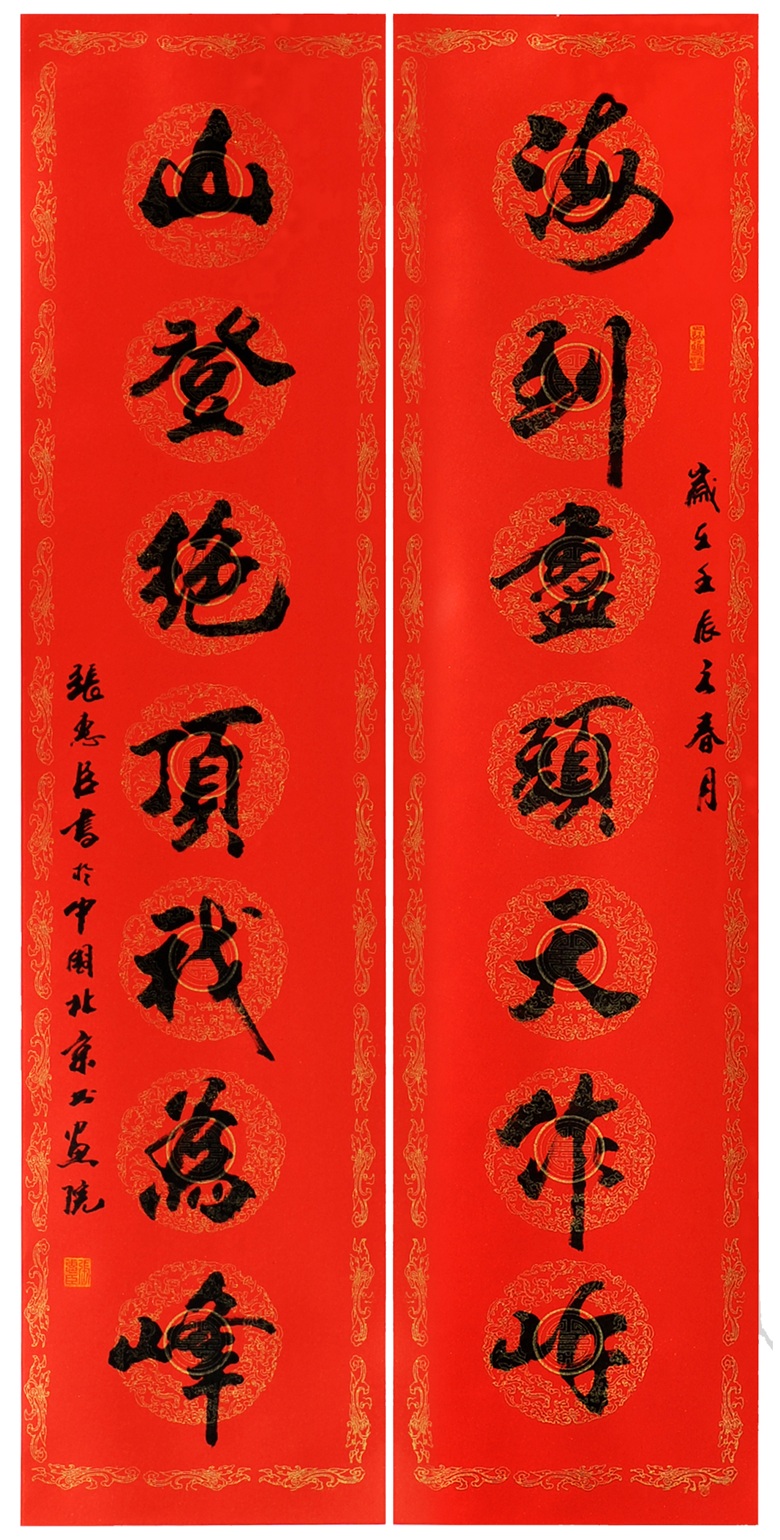 海到盡頭天作岸
歲在壬辰之春月
山登絕頂我為峰
張惠臣書於中國北京书畫院